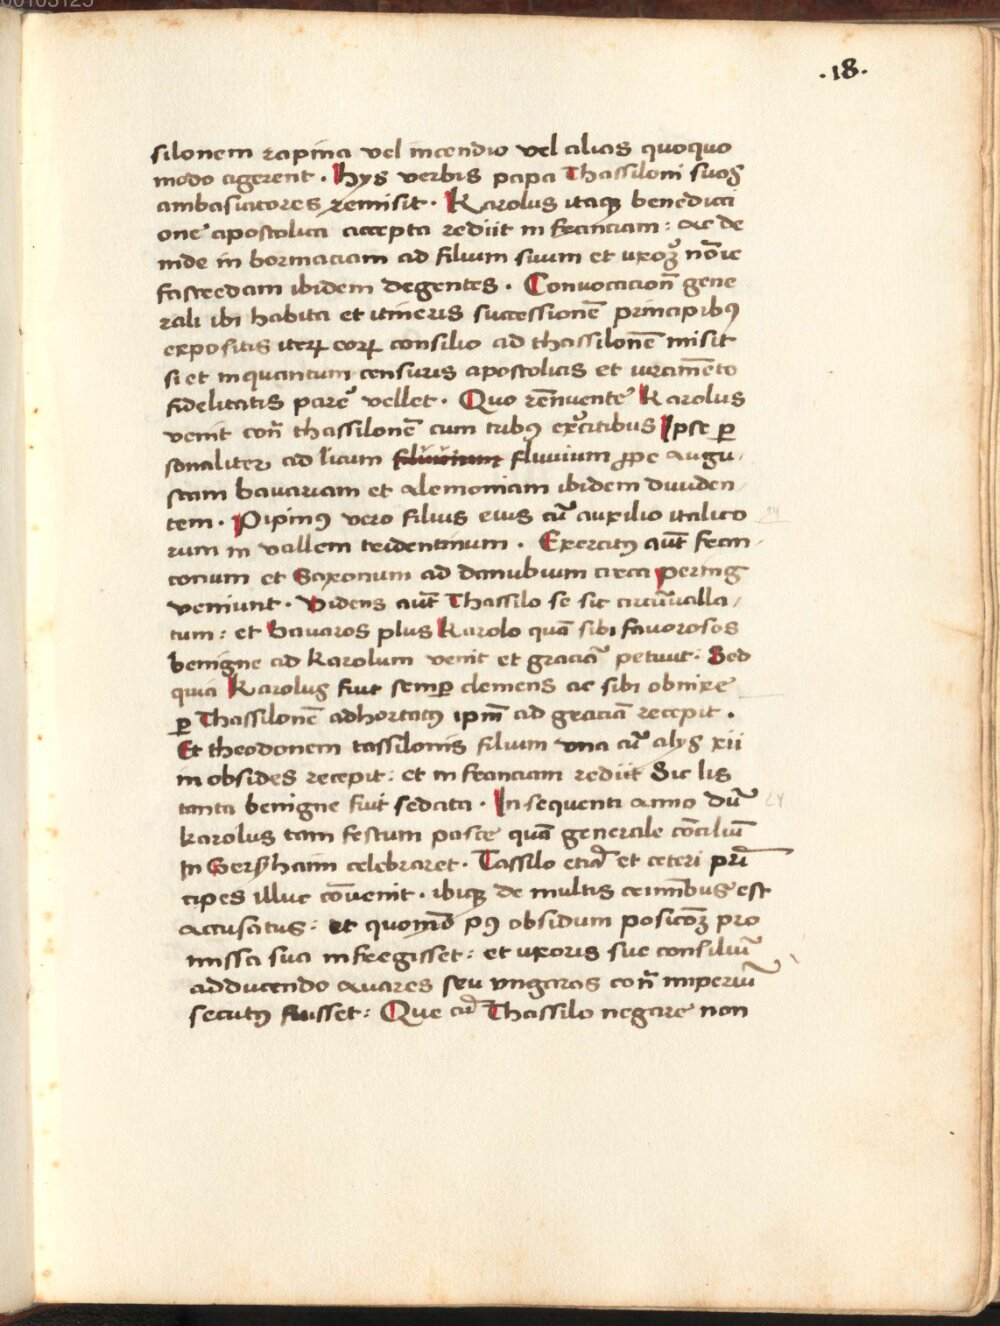 00103125
.18.
silonem rapina vel incendio vel alias quoquo
modo agerent . Hys verbis papa Thassiloni suos
ambasiatores remisit . Karolus itaqꝫ benedicti
one apostolica accepta rediit in franciam : ac de
inde in bormaciam ad filium suum et uxoꝫ nōīe
fastredam ibidem degentes . Convocacioñ gene
rali ibi habita et itineris successionē principibꝰ
expositis iteꝝ eoꝝ consilio ad thassilonē misit
si et inquantum censuris apostolicis et iuramēto
fidelitatis parē vellet . Quo rēnuente Karolus
venit coñ thassilonē cum tribꝰ exc̄itibus Ipse ꝑ
sonaliter ad licum fluvium ꝓpe augu
stam bavariam et alemoniam ibidem dividen
tem . Pipinꝰ vero filius eius cū auxilio italico
rum in vallem tridentinum . Exercitꝰ aūt fran
corum et Saxonum ad danubium circa pering
veniunt . Videns aūt Thassilo se sic circūvalla
tum : et bavaros plus Karolo quā sibi favorosos
benigne ad Karolum venit et graciā petivit . Sed
quia Karolus fuit semꝑ clemens ac sibi obnixe
ꝑ Thassilonē adhortatꝰ ipm̄ ad graciā recepit .
Et theodonem tassilonis filium una cū alys xii
in obsides recepit : et in franciam rediit Sic lis
tanta benigne fuit sedata . In sequenti anno dū
karolus tam festum pasce quā generale cōciliū
In Gersẏhaim celebraret . Tassilo etiā et ceteri prī
cipes illuc cōvenit . ibiqꝫ de multis criminībus est
accusatus : et quomō pꝰ obsidum posicōꝫ pro
missa sua infregisset : et uxoris sue consiliū
adducendo avares seu ungaros coñ imperiū
secutꝰ fuisset : Que cū Thassilo negare non